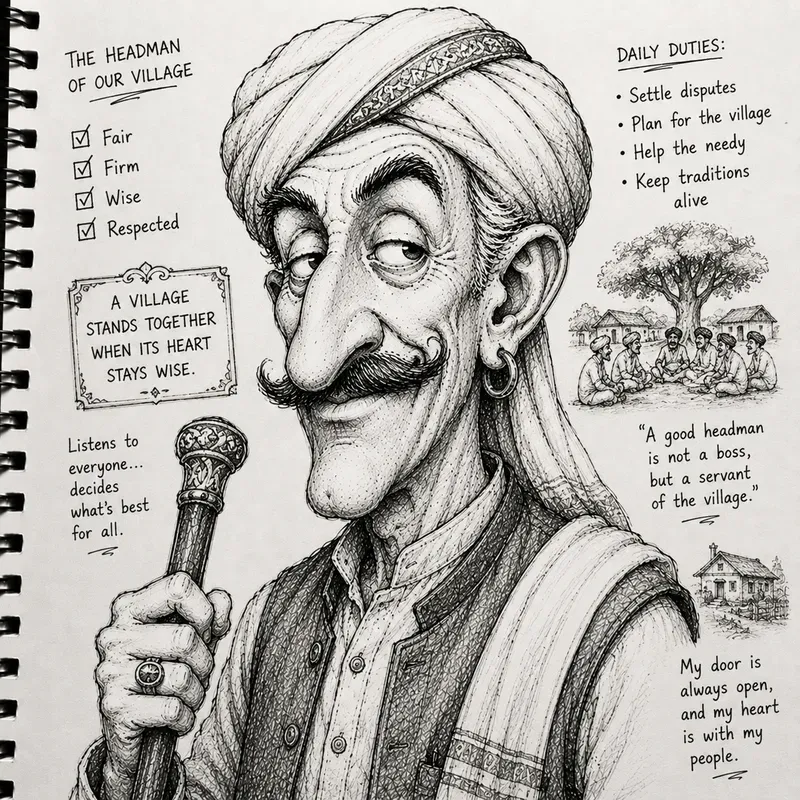 THE HEADMAN
OF OUR VILLAGE
Fair
Firm
Wise
Respected
A VILLAGE
STANDS TOGETHER
WHEN ITS HEART
STAYS WISE.
Listens to
everyone...
decides
what's best
for all.
DAILY DUTIES:
• Settle disputes
• Plan for the village
• Help the needy
• Keep traditions
alive
"A good headman
is not a boss,
but a servant
of the village."
My door is
always open,
and my heart
is with my
people.